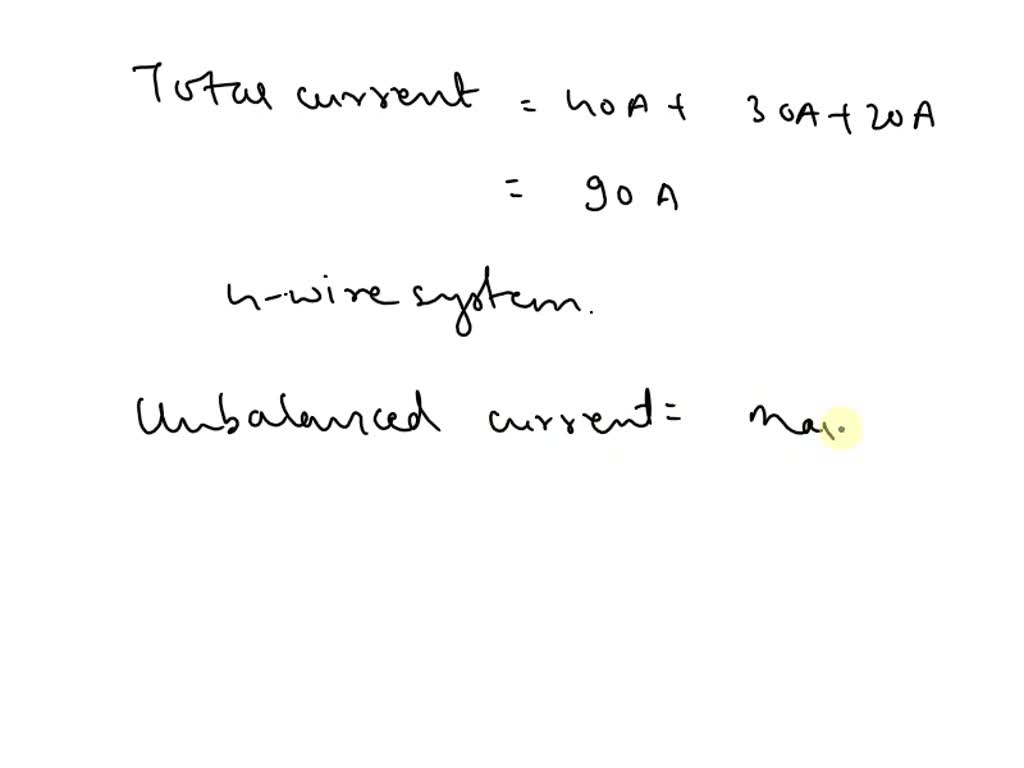 Total current = 40A + 30A + 20A
= 90 A
4-wire system.
Unbalanced current = Max.